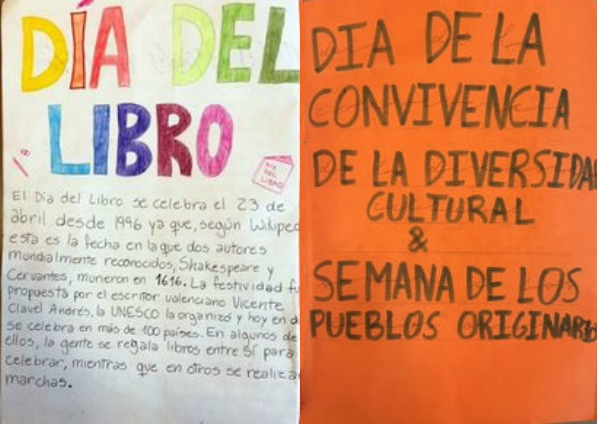 DÍA DEL
LIBRO
DÍA
DEL
LIBRO
El Día del Libro se celebra el 23 de
abril desde 1996 ya que, según Wikiped
esta es la fecha en la que dos autores
mundialmente reconocidos, Shakespeare y
Cervantes, murieron en 1616. La festividad fu
propuesta por el escritor valenciano Vicente
Clavel Andrés, la UNESCO la organizó y hoy en d
se celebra en más de 100 países. En algunos de
ellos, la gente se regala libros entre sí para
celebrar, mientras que en otros se realiza
marchas.
DIA DE LA
CONVIVENCIA
DE LA DIVERSIDAD
CULTURAL
&
SEMANA DE LOS
PUEBLOS ORIGINARIO